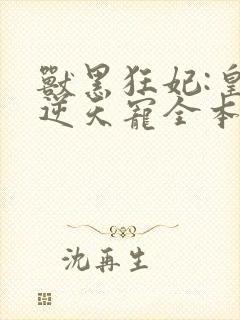 獸黑狂妃:皇
逆天寵全本
沈再生